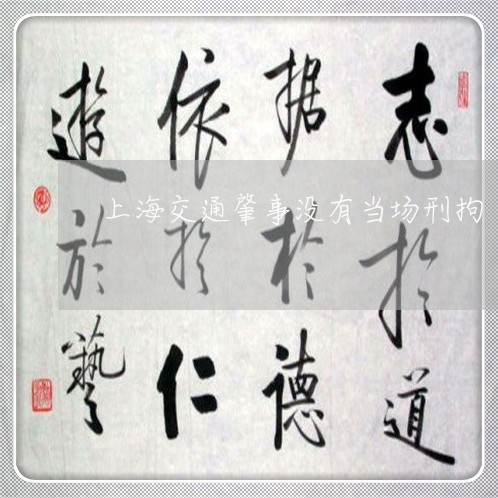 志於道
据於德
依於仁
遊於藝
上海交通肇事没有当场刑拘